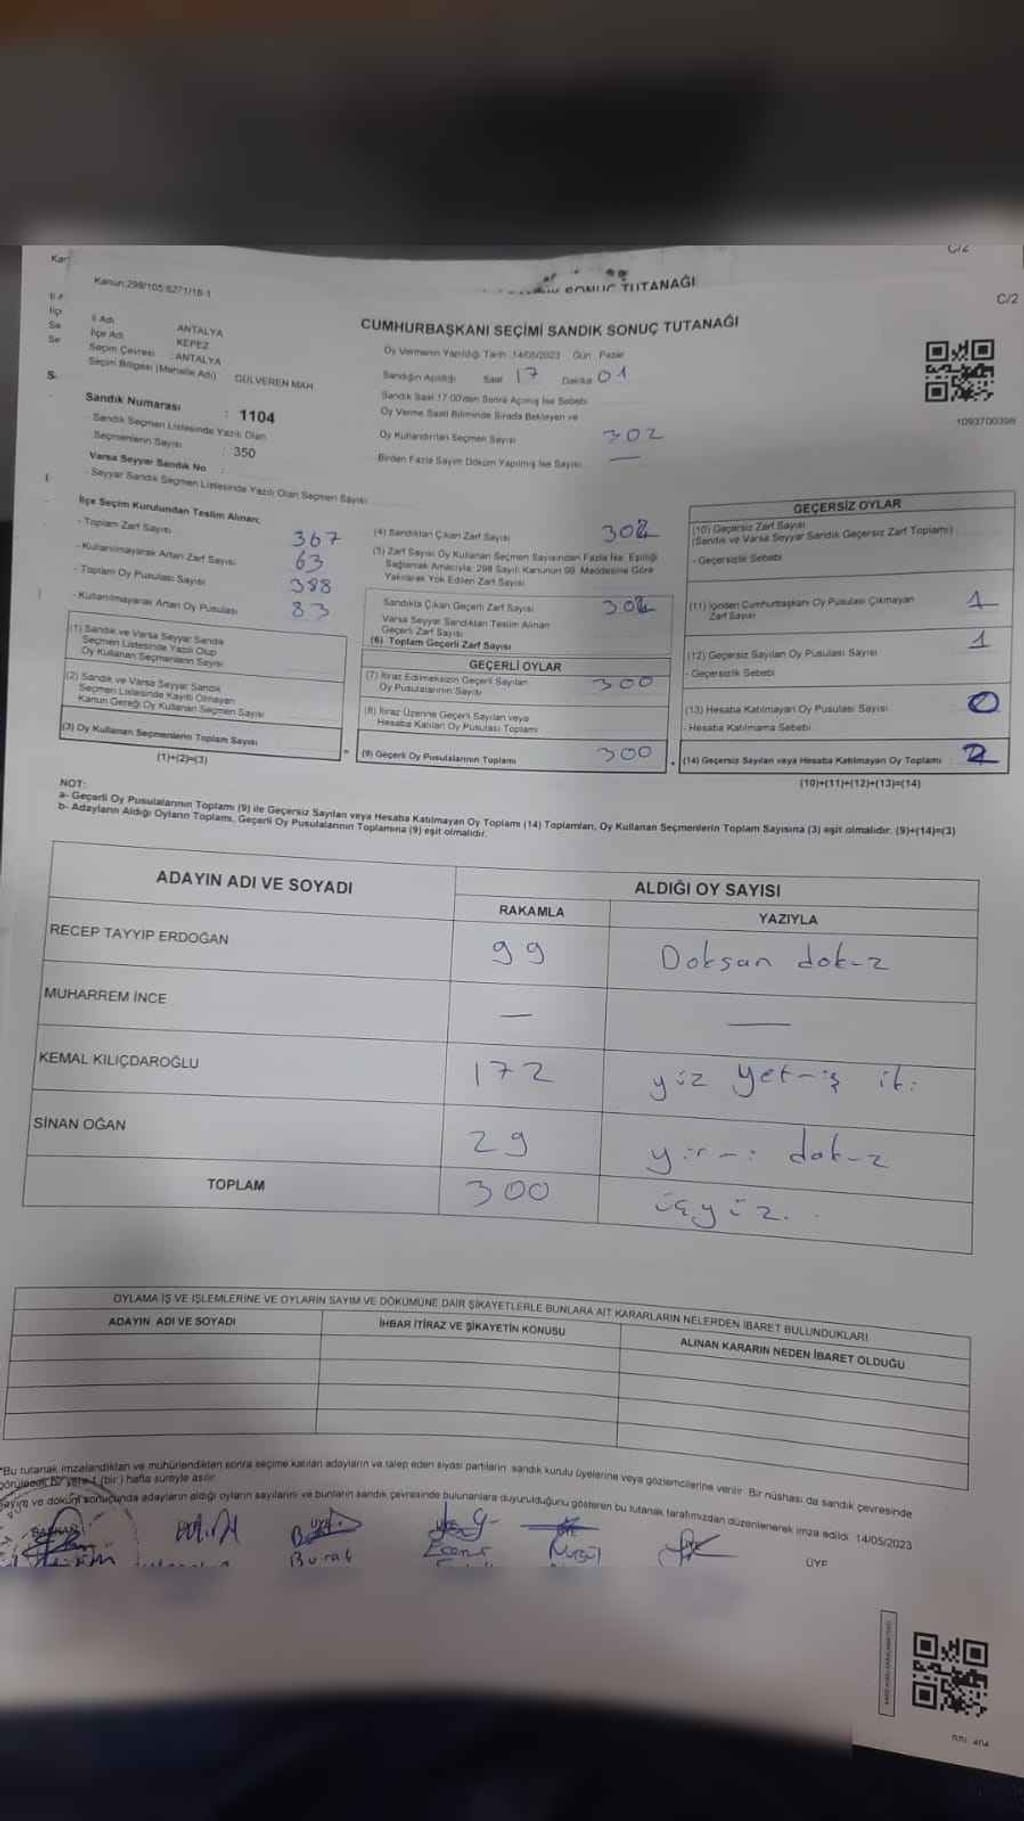 C/2
Kanun:298/105 6271/18-1
SONUÇ TUTANAĞI
C/2
CUMHURBAŞKANI SEÇİMİ SANDIK SONUÇ TUTANAĞI
İl Adı ANTALYA
İlçe Adı KEPEZ
Seçim Çevresi : ANTALYA
Seçim Bölgesi (Mahalle Adı) GÜLVEREN MAH
Sandık Numarası : 1104
Sandık Seçmen Listesinde Yazılı Olan
Seçmenlerin Sayısı : 350
Varsa Seyyar Sandık No
- Seyyar Sandık Seçmen Listesinde Yazılı Olan Seçmen Sayısı
Oy Vermenin Yapıldığı Tarih 14/05/2023 Gün Pazar
Sandığın Açıldığı Saat 17 Dakika 01
Sandık Saat 17:00'den Sonra Açılmış İse Sebebi
Oy Verme Saati Bitiminde Sırada Bekleyen ve
Oy Kullandırılan Seçmen Sayısı 302
Birden Fazla Sayım Döküm Yapılmış İse Sayısı —
1093700398
İlçe Seçim Kurulundan Teslim Alınan;
- Toplam Zarf Sayısı 367
- Kullanılmayarak Artan Zarf Sayısı 63
- Toplam Oy Pusulası Sayısı 388
- Kullanılmayarak Artan Oy Pusulası 83
(1) Sandık ve Varsa Seyyar Sandık
Seçmen Listesinde Yazılı Olup
Oy Kullanan Seçmenlerin Sayısı
(2) Sandık ve Varsa Seyyar Sandık
Seçmen Listesinde Kayıtlı Olmayan
Kanun Gereği Oy Kullanan Seçmen Sayısı
(3) Oy Kullanan Seçmenlerin Toplam Sayısı
(1)+(2)=(3)
(4) Sandıktan Çıkan Zarf Sayısı 302
(5) Zarf Sayısı Oy Kullanan Seçmen Sayısından Fazla İse, Eşitliği
Sağlamak Amacıyla, 298 Sayılı Kanunun 98. Maddesine Göre
Yakılarak Yok Edilen Zarf Sayısı
Sandıkta Çıkan Geçerli Zarf Sayısı 302
Varsa Seyyar Sandıktan Teslim Alınan
Geçerli Zarf Sayısı
(6) Toplam Geçerli Zarf Sayısı
GEÇERLİ OYLAR
(7) İtiraz Edilmeksizin Geçerli Sayılan
Oy Pusulalarının Sayısı 300
(8) İtiraz Üzerine Geçerli Sayılan veya
Hesaba Katılan Oy Pusulası Toplamı
(9) Geçerli Oy Pusulalarının Toplamı 300
GEÇERSİZ OYLAR
(10) Geçersiz Zarf Sayısı
(Sandık ve Varsa Seyyar Sandık Geçersiz Zarf Toplamı)
- Geçersizlik Sebebi
(11) İçinden Cumhurbaşkanı Oy Pusulası Çıkmayan
Zarf Sayısı 1
(12) Geçersiz Sayılan Oy Pusulası Sayısı 1
- Geçersizlik Sebebi
(13) Hesaba Katılmayan Oy Pusulası Sayısı 0
- Hesaba Katılmama Sebebi
(14) Geçersiz Sayılan veya Hesaba Katılmayan Oy Toplamı 2
(10)+(11)+(12)+(13)=(14)
NOT:
a- Geçerli Oy Pusulalarının Toplamı (9) ile Geçersiz Sayılan veya Hesaba Katılmayan Oy Toplamı (14) Toplamları, Oy Kullanan Seçmenlerin Toplam Sayısına (3) eşit olmalıdır. (9)+(14)=(3)
b- Adayların Aldığı Oyların Toplamı, Geçerli Oy Pusulalarının Toplamına (9) eşit olmalıdır.
ADAYIN ADI VE SOYADI ALDIĞI OY SAYISI
RAKAMLA YAZIYLA
RECEP TAYYİP ERDOĞAN 99 Doksan dokuz
MUHARREM İNCE — —
KEMAL KILIÇDAROĞLU 172 yüz yetmiş iki
SİNAN OĞAN 29 yirmi dokuz
TOPLAM 300 üçyüz.
OYLAMA İŞ VE İŞLEMLERİNE VE OYLARIN SAYIM VE DÖKÜMÜNE DAİR ŞİKAYETLERLE BUNLARA AİT KARARLARIN NELERDEN İBARET BULUNDUKLARI
ADAYIN ADI VE SOYADI İHBAR İTİRAZ VE ŞİKAYETİN KONUSU ALINAN KARARIN NEDEN İBARET OLDUĞU
*Bu tutanak imzalandıktan ve mühürlendikten sonra seçime katılan adayların ve talep eden siyasi partilerin, sandık kurulu üyelerine veya gözlemcilerine verilir. Bir nüshası da sandık çevresinde
görülecek bir yere 1 (bir ) hafta süreyle asılır.
Sayım ve döküm sonucunda adayların aldığı oyların sayılarını ve bunların sandık çevresinde bulunanlara duyurulduğunu gösteren bu tutanak tarafımızdan düzenlenerek imza edildi. 14/05/2023
BAŞKAN
Burak Nurgül
ÜYE